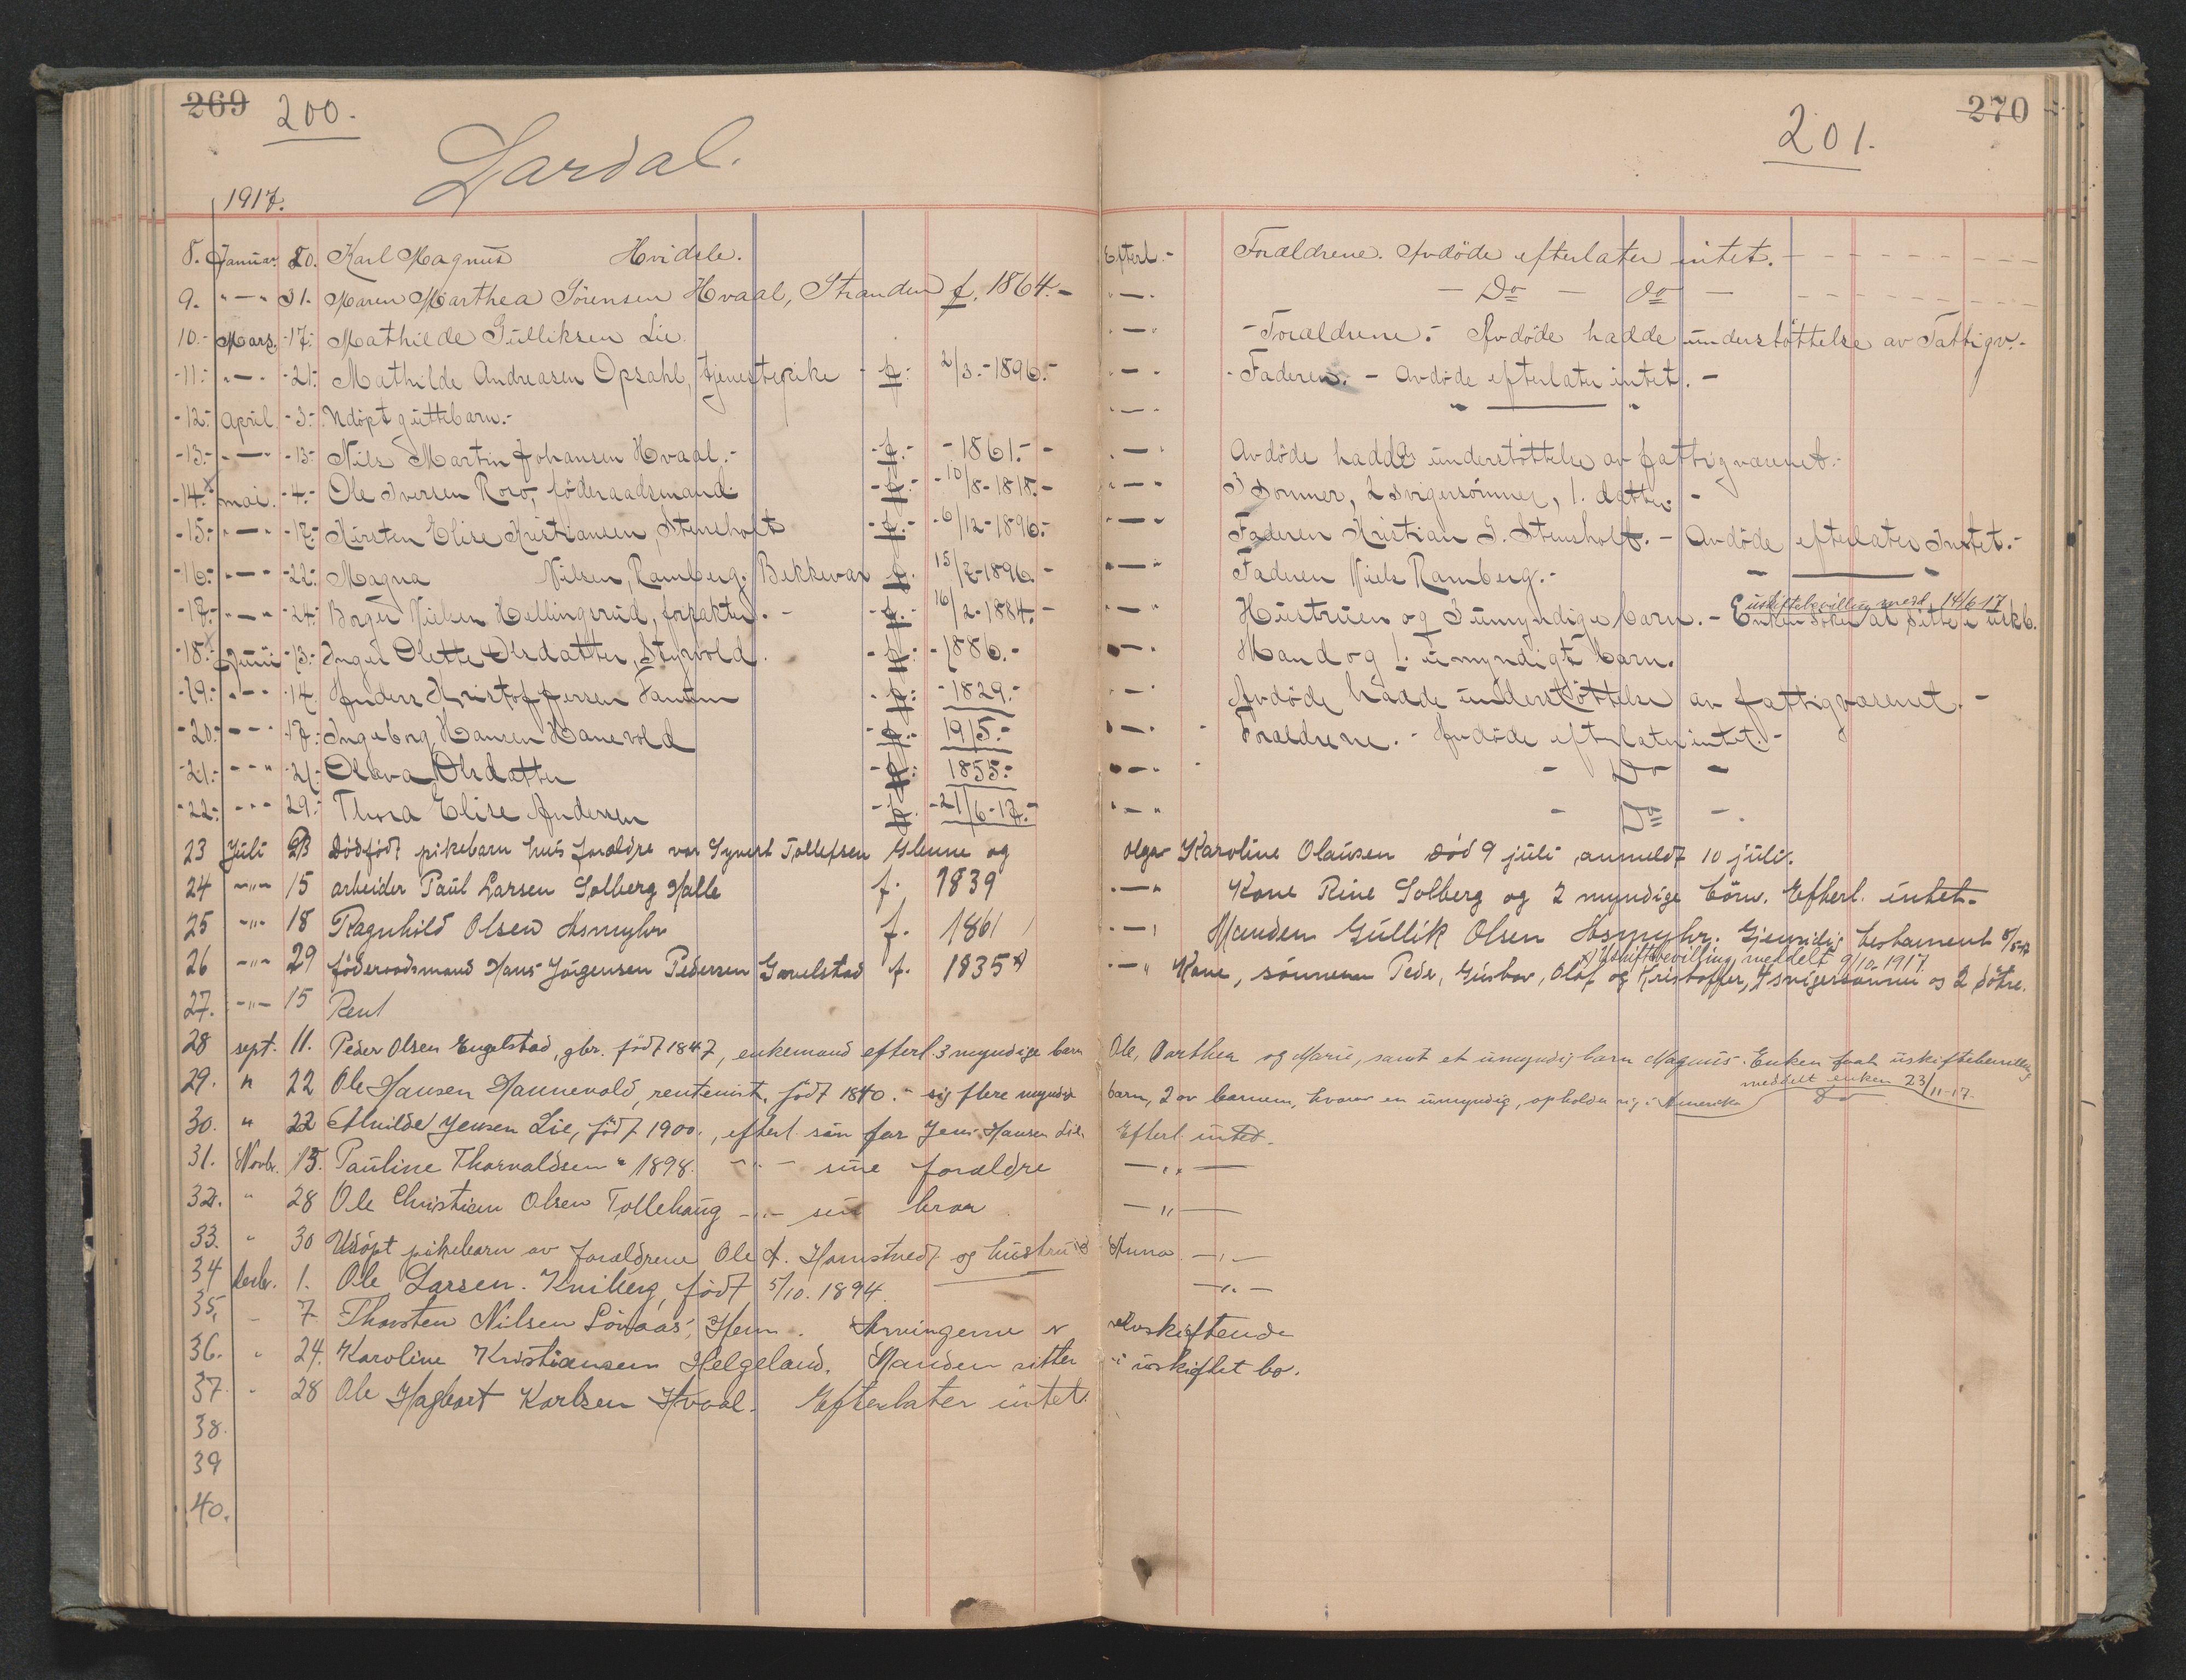 269 200.
201. 270
Lardal.
1917.
8. Januar. 20. Karl Magnus Hvidsle. Efterl.- Forældrene. Avdøde efterlater intet.-
9. "-" 31. Maren Marthea Sørensen Hvaal, Stranden f. 1864.- "-" - Do - do -
10.- Mars. -17.- Mathilde Gulliksen Lie. "-" -Forældrene.- Avdøde hadde understøttelse av Fattigv.-
-11.- "-" -21.- Mathilde Andreasen Opsahl, tjenestepike - f.- 2/3.-1896.- "-" -Faderen.- Avdøde efterlater intet.-
-12.- April. -3.- Udøpt guttebarn.- "-" " "
-13.- "-" -13- Nils Martin Johansen Hvaal.- -f.- -1861.- "-" Avdøde hadde understøttelse av fattigvæsenet.-
-14.x mai. -4.- Ole Iversen Roro, føderaadsmand. -f.- -10/8-1818.- "-" 3 Sønner, 2 svigersønner, 1. datter.-
-15.- "-" -17.- Kirsten Elise Kristiansen, Stensholt -f.- -6/12-1896.- "-" Faderen Kristian S. Stensholt.- Avdøde efterlater Intet.-
-16.- "-" -22.- Magna Nilsen, Ramberg. Bekkevar f. 15/7-1896.- "-" Faderen Niels Ramberg.- - -
uskiftebevilling medd. 14/6-17
-17.- "-" -24.- Borger Nielsen Hellingsrud, forpakter.- -f.- 16/2-1884.- "-" Hustruen og 3 umyndige barn.- Enken søker at sitte i uskb.
-18.x Juni -13.- Ingel Olette Olsdatter, Styrvold. -f.- -1886.- "-" Mand og 1. umyndigt barn.
-19.- "-" 14. Anders Kristoffersen -f.- -1829.- "-" Avdøde hadde understøttelse av fattigvæsenet.-
-20.- "-" -17.- Ingeborg Hansen Hanevold -f.- 1915.- "-" - Forældrene.- Avdøde efterlater intet.-
-21.- "-" -21.- Olava Olsdatter -f.- 1855.- "-" - - Do -
-22.- "-" 29.- Thora Elise Andersen -f.- -21/6-17.- "-" - Do -.
23 Juli Dødfødt pikebarn hvis forældre var Syvert Tollefsen Glenne og Olga Karoline Olausen død 9 juli, anmeldt 10 juli.
24 -"- 15 arbeider Paul Larsen Solberg Halle f. 1839 "-" Kone Rine Solberg og 2 myndige børn. Efterl. intet.
25 -"- 18 Ragnhild Olsen Asmyhr f. 1861 "-" Manden Gullik Olsen Asmyhr. Gjensidig testament
x) Uskiftebevilling meddelt 9/10.1917.
26 -"- 29 føderaadsmand Hans Jørgensen Pedersen Gavelstad f. 1835 x) "-" Kone, sønnene Peder, Gustav, Olaf og Kristoffer, 4 svigersønner og 2 døtre.
27. -"- 15 Rent
28 sept. 11. Peder Olsen Engelstad, gbr. født 1847, enkemand efterl. 3 myndige barn Ole, Darthea og Marie, samt et umyndig barn Magnus. Enken faat uskiftebevilling
meddelt enken 23/11-17.
29. " 22 Ole Hansen Hannevold, rentenist, født 1840. - sig flere myndige barn, 2 av barnene, hvorav en umyndig, opholder sig i Amerika Do
30. " 22 Alvilde Jensen Lie, født 1900., efterl. sin far Jens Hansen Lie. Efterl. intet.
31. Novbr. 15. Pauline Thorvaldsen " 1898. -"- sine forældre -"-
32. " 28 Ole Christian Olsen Tollehaug -"- sin bror. -"-
33. " 30 Udøpt pikebarn av forældrene Ole A. Hamstvedt og hustru Anna -"-
34 desbr. 1. Ole Larsen. Kniberg, født 5/10.1894. -"-
35. - 7 Thorsten Nilsen Lønaas, Hem. Arvingerne er selvskiftende
36. " 24. Karoline Kristiansen Helgeland. Manden sitter i uskiftet bo.
37. " 28 Ole Hagbart Karlsen Hvaal. Efterlater intet.
38.
39
40.